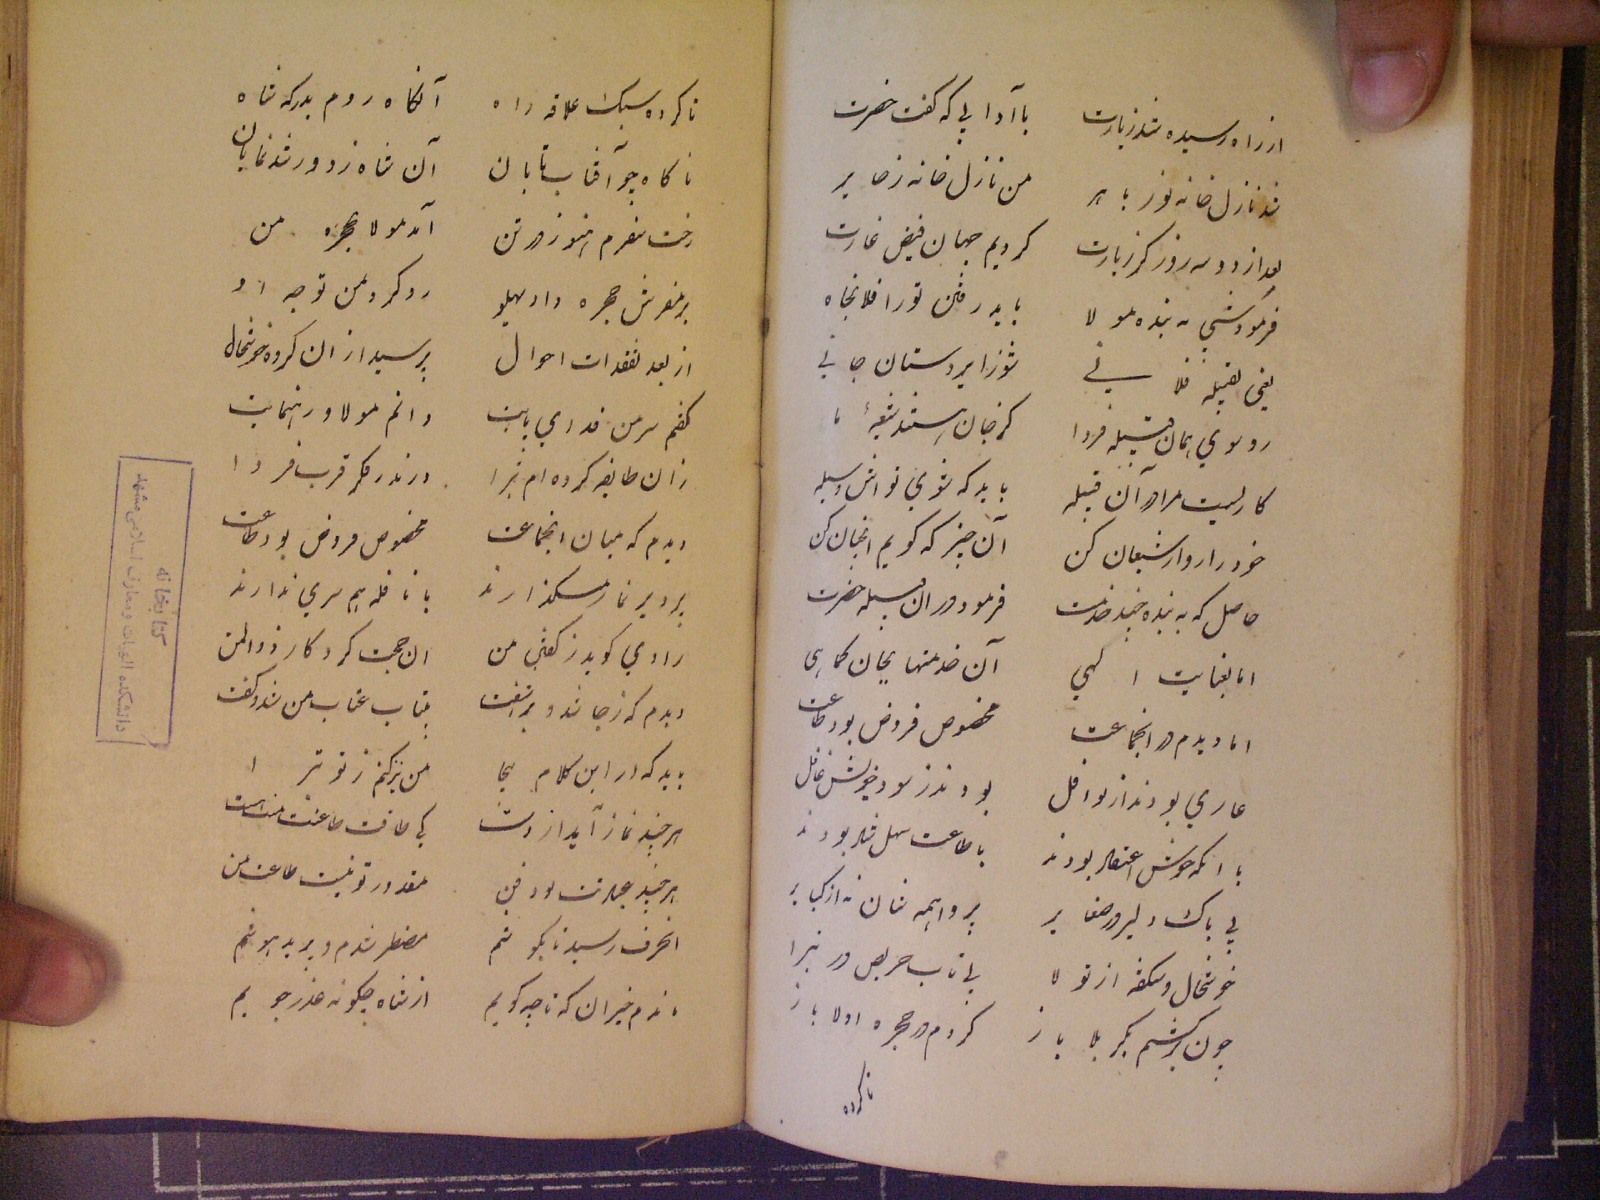 از راه رسیده شد زیارت با آدابی که گفت حضرت
شد نازل خانه نوز با هر من نازل خانه ز حایر
بعد از دو سه روز کز زیارت کردیم جهان فیض غارت
فرمود شبی به بنده مولا باید رفتن تو را فلان جاه
یعنی بقبیله فلانی شو زایر دوستان جانی
رو سوی همان قبیله فردا کز جان هستند شیعهٔ ما
کاریست مرا در آن قبیله باید که شوی تو اش وسیله
خود را روا شیعان کن آن چیز که گویم آنچنان کن
حاصل که به بنده چند خدمت فرمود در آن قبیله حضرت
اما بعنایت الهی آن خدمتها بجان کماهی
اما دیدم در آنجماعت مخصوص فروض بود طاعت
عاری بودند از نوافل بودند ز سود خویش غافل
با آنکه خوش اعتقاد بودند با طاعت سهل شاد بودند
بی باک و لیر در صغایر پروا همه شان نه از کبایر
خوشحال و شکفته از تولا بی تاب حریص در تبرا
چون برگشتم بکربلا باز کردم در حجره اولا باز
ناکرده
ناکرده سبک علاقه راه آنگاه روم بدرگه شاه
ناگاه چو آفتاب تابان آن شاه ز دور شد نمایان
رخت سفرم هنوز در تن آمد مولا بحجره من
بر مفرش حجره داد پهلو رو کرد و من توجه او
از بعد تفقدات احوال پرسید از آن گروه خوشحال
گفتم سر من فدای پایت دانم مولا و رهنمایت
زان طایفه کرده ام تبرا در ندر فکر قرب فردا
دیدم که میان آنجماعت مخصوص فروض بود طاعت
بر دیر نماز میگذارند با نافله هم سری ندارند
راوی گوید ز گفتن من آن حجت کردگار ذوالمن
دیدم که ز جا شد و برآشفت بیتاب عتاب من شد و گفت
باید که در این کلام بیجا من نیز کنم ز تو تبرا
هر چند نماز آید از دست کی طاقت طاعت منت هست
هر چند عبادتت بود فن مقدور تو نیست طاعت من
آنحرف رسید تا بگوشم مضطر شدم و پرید هوشم
ماندم حیران که تا چه گویم از شاه چگونه عذر جویم
کتابخانه
دانشکده الهیات و معارف اسلامی مشهد